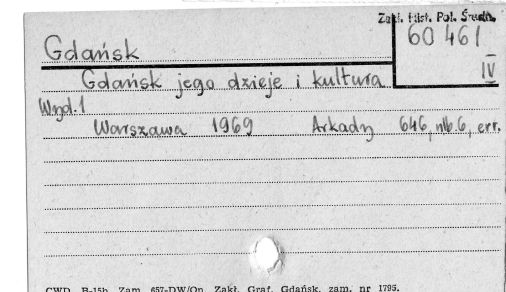 Zakł. Hist. Pol. Średn.
Gdańsk
60 461
IV
Gdańsk jego dzieje i kultura
Wyd. 1
Warszawa 1969 Arkady 646, nlb. 6, err.
CWD B-15b Zam. 657-DW/Op. Zakł. Graf. Gdańsk, zam. nr 1795.